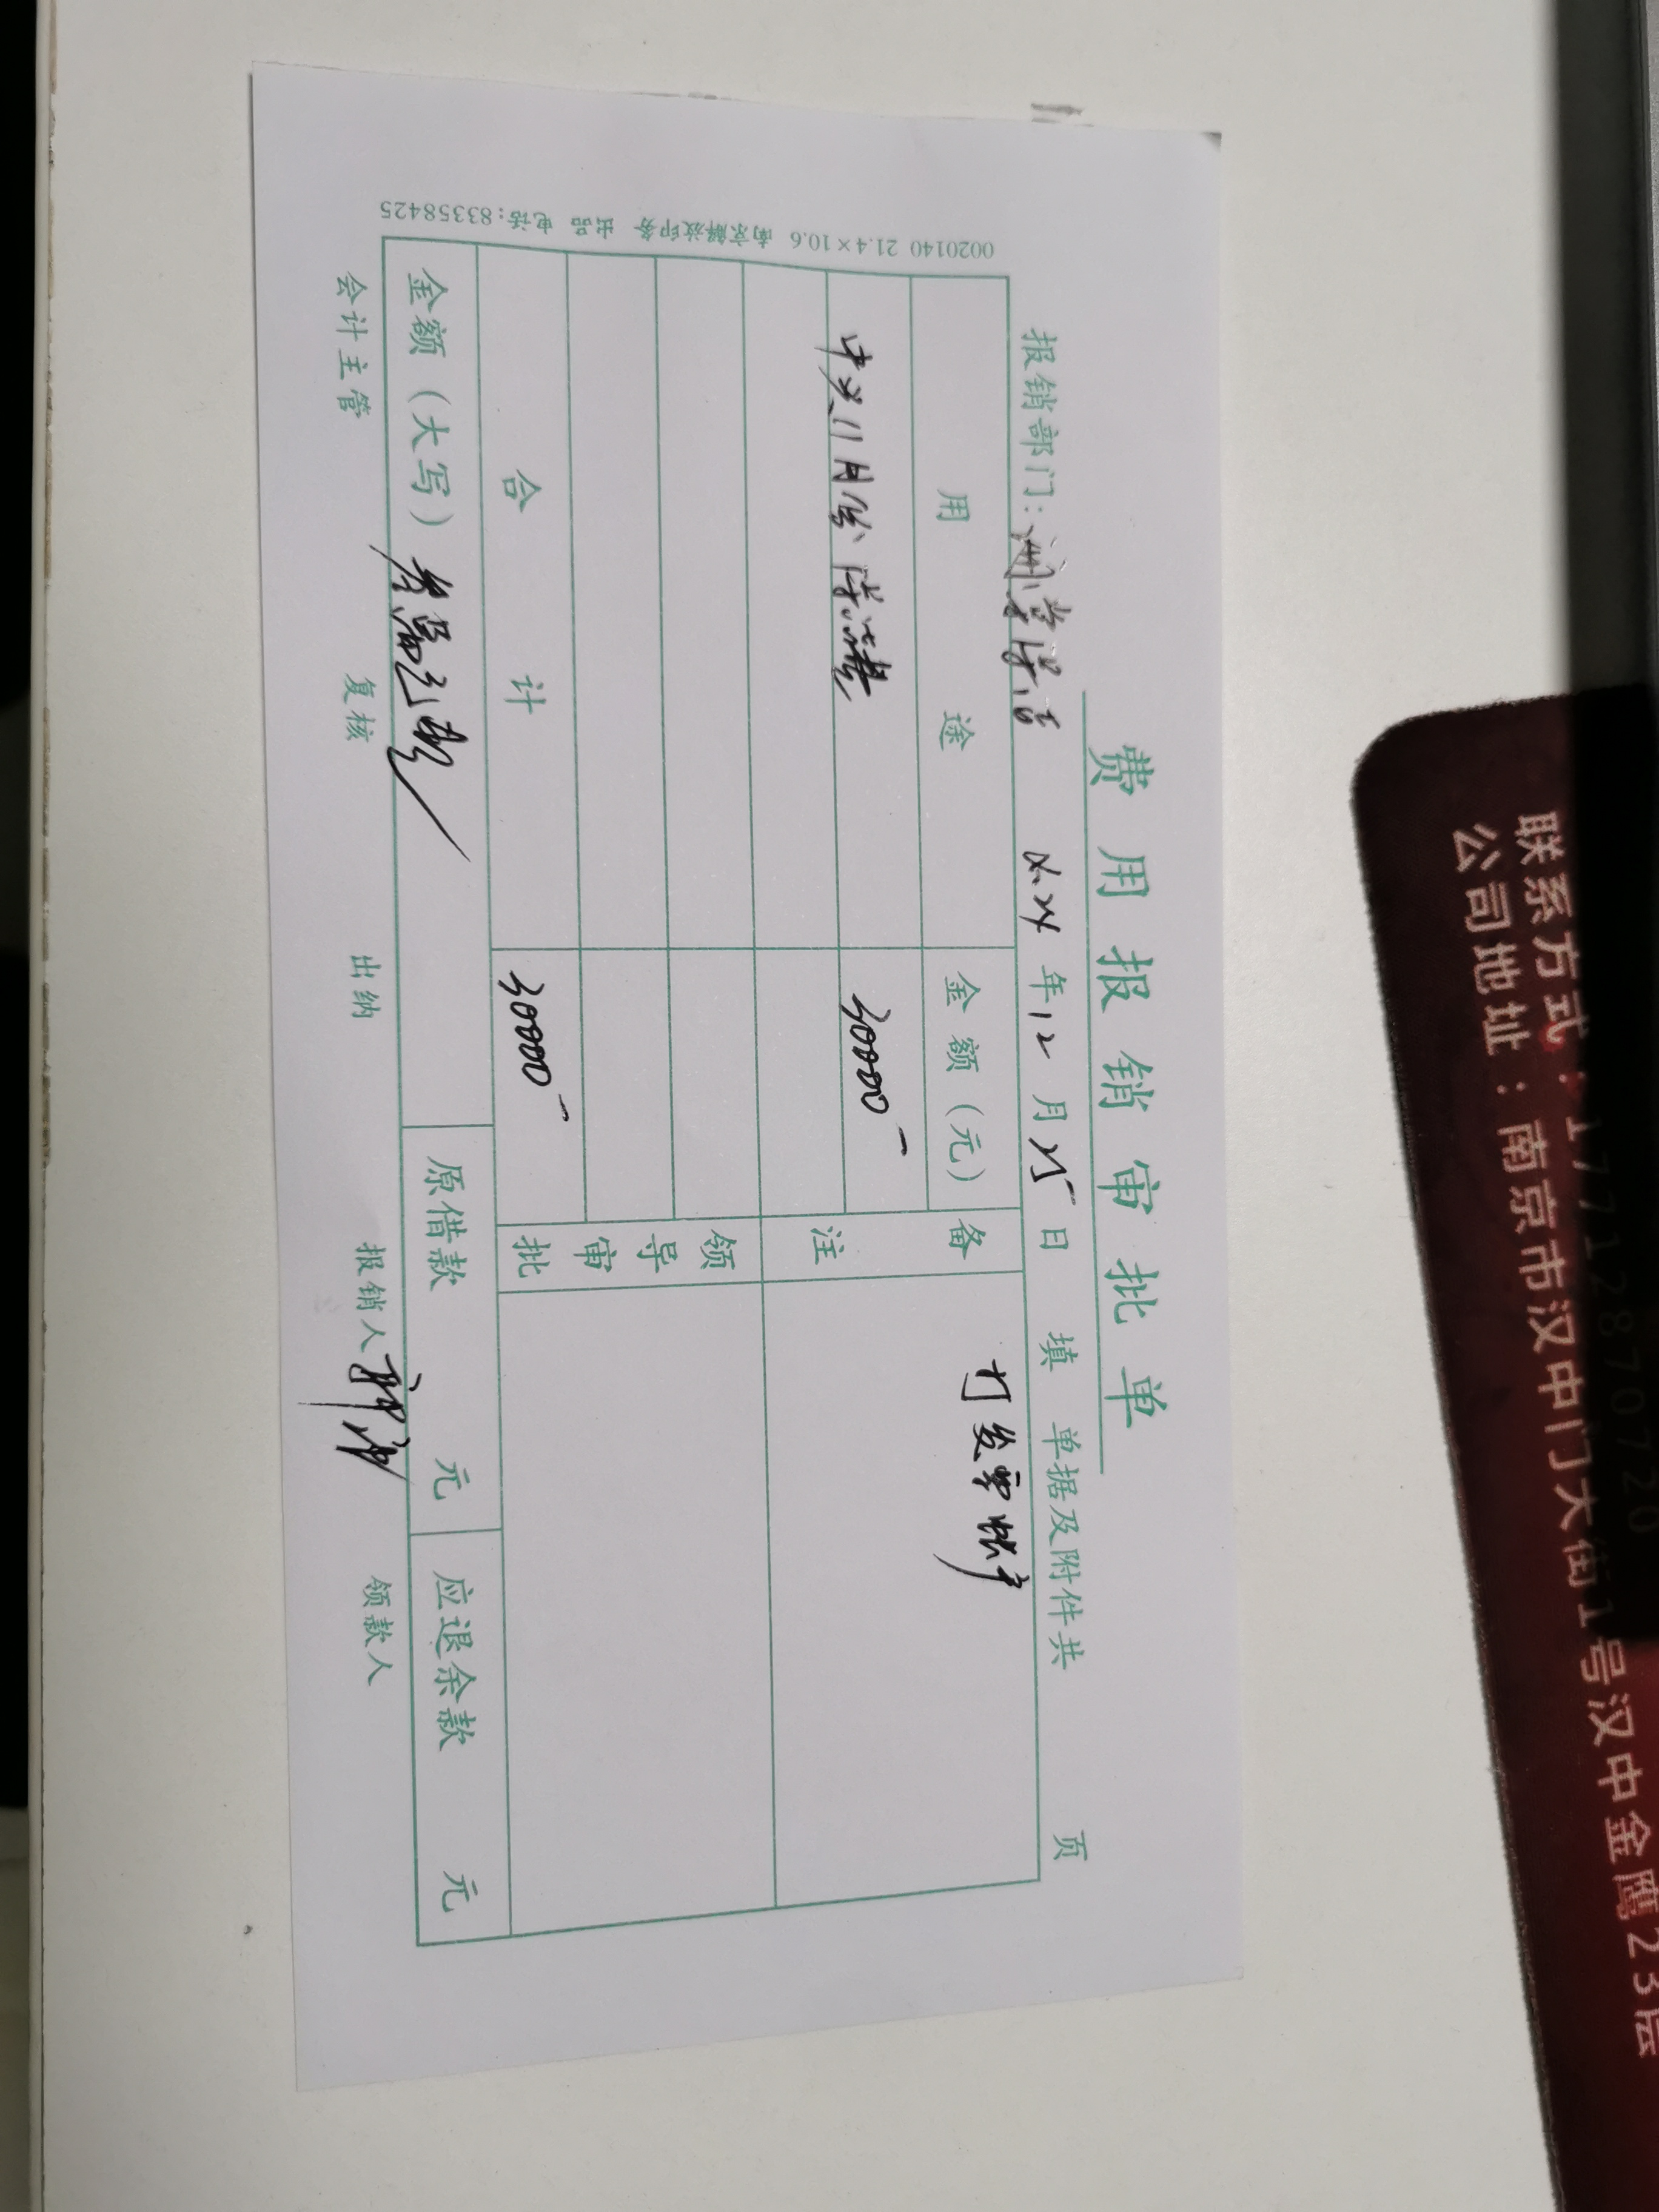 费用报销审批单
报销部门: 2024 年 12 月 25 日 填 单据及附件共 页
用途 金额(元) 备注 打发票账户
中兴11月份 30000-
领导审批
合计 30000-
金额(大写) 叁万元整 原借款 元 应退余款 元
会计主管 复核 出纳 报销人 领款人
0020140 21.4×10.6 南京解放印务 出品 电话:83358425
联系方式:17712870720
公司地址:南京市汉中门大街1号汉中金鹰23层